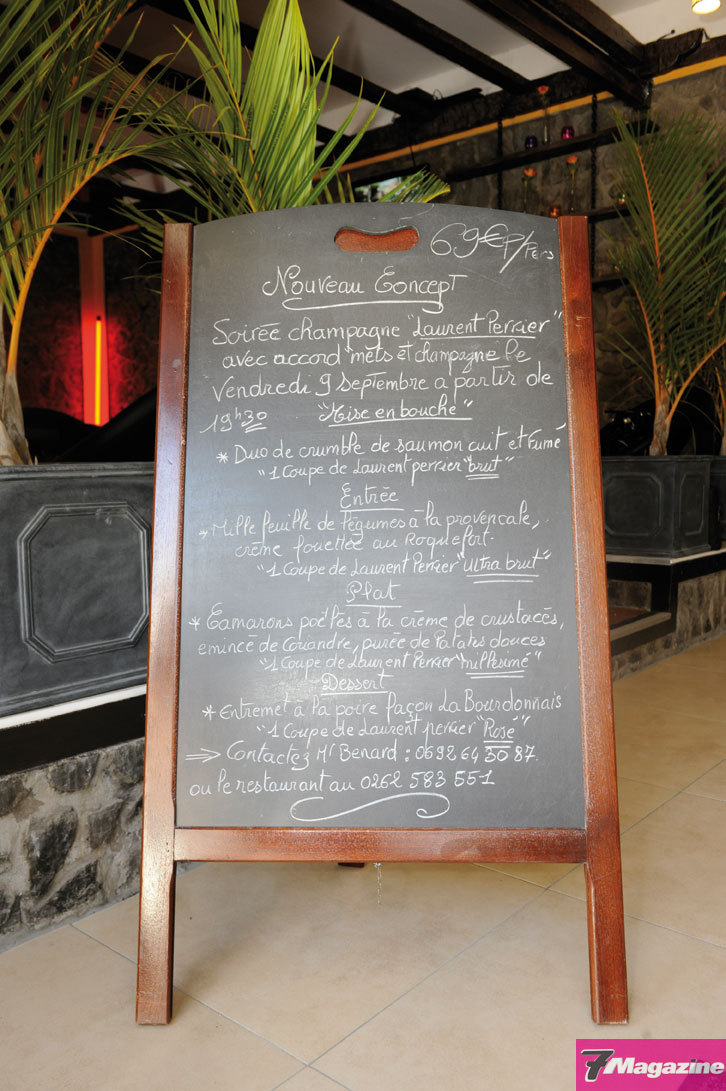 69€P/Pers
Nouveau Concept
Soirée champagne "Laurent Perrier"
avec accord mets et champagne le
Vendredi 9 Septembre a partir de
19h30 "Mise en bouche"
* Duo de crumble de saumon cuit et Fumé
"1 Coupe de Laurent perrier "brut"
Entrée
* Mille feuille de légumes à la provencale,
crème fouettée au Roquefort.
"1 Coupe de Laurent Perrier "Ultra brut"
Plat
* Camarons poêlés à la crème de crustacés,
emincé de Coriandre, purée de Patates douces
"1 Coupe de Laurent Perrier "millésimé"
Dessert
* Entremet à la poire façon La Bourdonnais
"1 Coupe de Laurent perrier "Rosé"
⇒ Contactez Mr Benard : 0692 64 30 87.
ou le restaurant au 0262 583 551
7Magazine